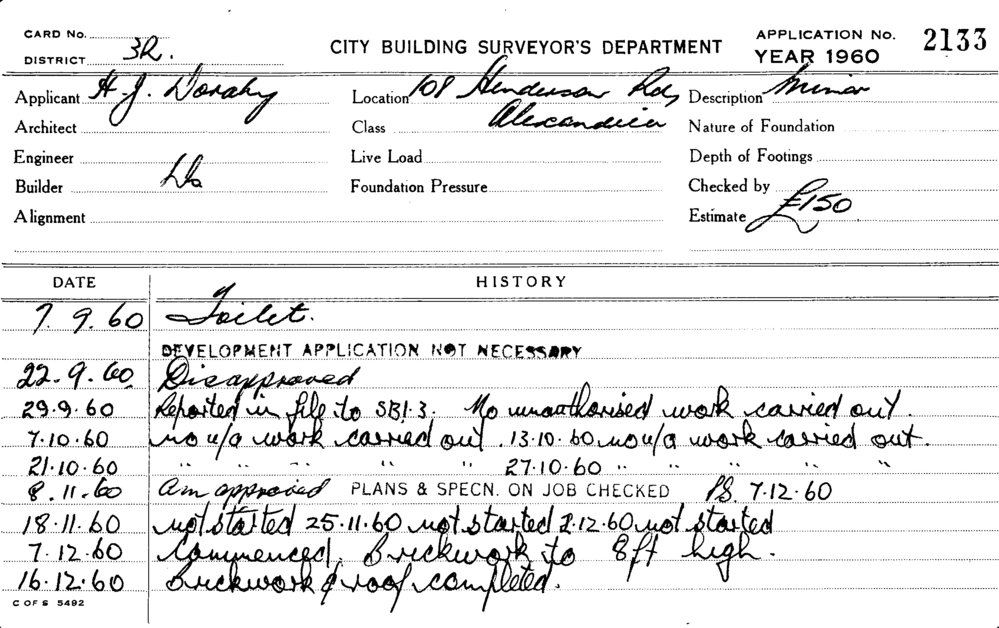 CARD No.
DISTRICT 3R.
CITY BUILDING SURVEYOR'S DEPARTMENT
APPLICATION No. 2133
YEAR 1960
Applicant H. J. Dorahy
Location 108 Henderson Rd, Alexandria
Description Minor
Architect
Class
Nature of Foundation
Engineer
Live Load
Depth of Footings
Builder Do
Foundation Pressure
Checked by
Alignment
Estimate £150
DATE HISTORY
7.9.60 Toilet.
DEVELOPMENT APPLICATION NOT NECESSARY
22.9.60 Disapproved
29.9.60 Reported in file to SBI.3. No unauthorised work carried out.
7.10.60 no u/a work carried out. 13.10.60 no u/a work carried out.
21.10.60 " " " " " 27.10.60 " " " " "
8.11.60 Am approved PLANS & SPECN. ON JOB CHECKED P.S. 7.12.60
18.11.60 not started 25.11.60 not started 2.12.60 not started
7.12.60 Commenced. Brickwork to 8ft high.
16.12.60 Brickwork & roof completed.
C OF S 5492